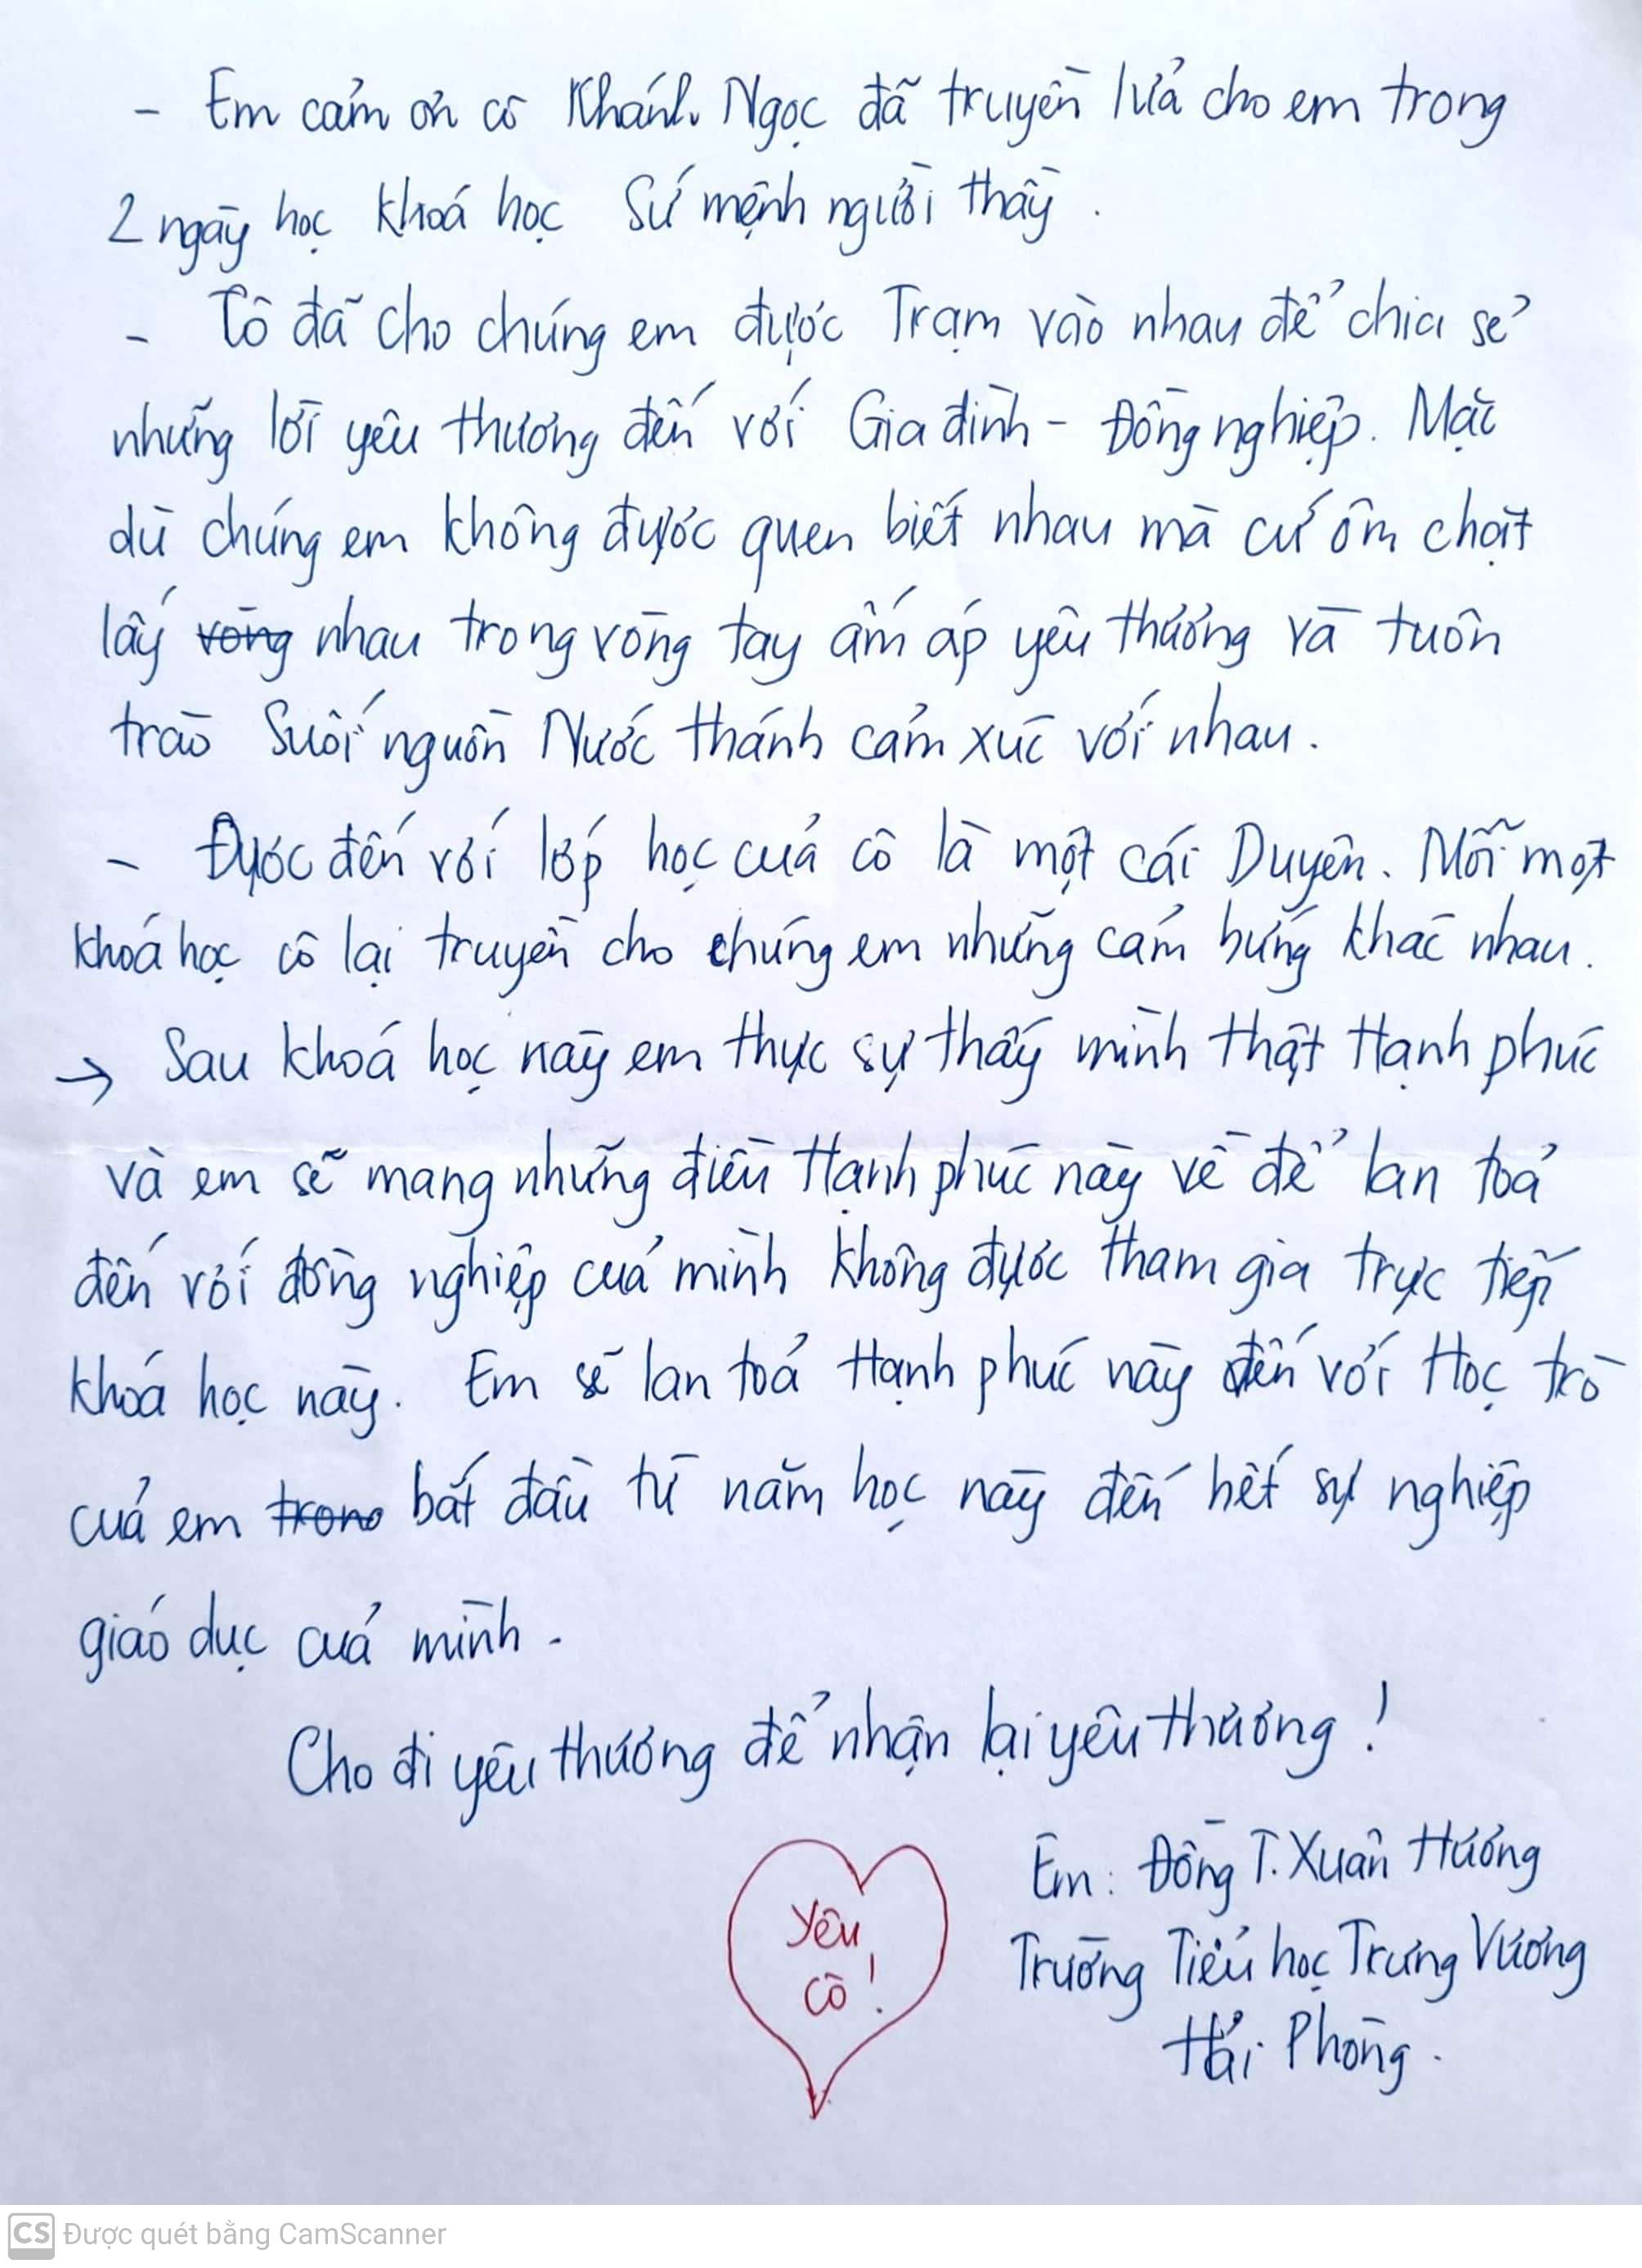 - Em cảm ơn cô Khánh Ngọc đã truyền lửa cho em trong
2 ngày học khoá học Sứ mệnh người thầy.
- Cô đã cho chúng em được Trạm vào nhau để chia sẻ
những lời yêu thương đến với Gia đình - Đồng nghiệp. Mặc
dù chúng em không được quen biết nhau mà cứ ôm chặt
lấy vòng nhau trong vòng tay ấm áp yêu thương và tuôn
trào Suối nguồn Nước thánh cảm xúc với nhau.
- Được đến với lớp học của cô là một cái Duyên. Mỗi một
khoá học cô lại truyền cho chúng em những cảm hứng khác nhau.
→ Sau khoá học này em thực sự thấy mình thật Hạnh phúc
và em sẽ mang những điều Hạnh phúc này về để lan toả
đến với đồng nghiệp của mình không được tham gia trực tiếp
khoá học này. Em sẽ lan toả Hạnh phúc này đến với Học trò
của em trong bắt đầu từ năm học này đến hết sự nghiệp
giáo dục của mình.
Cho đi yêu thương để nhận lại yêu thương!
Yêu
cô!
Em: Đồng T. Xuân Hương
Trường Tiểu học Trưng Vương
Hải Phòng.
CS Được quét bằng CamScanner